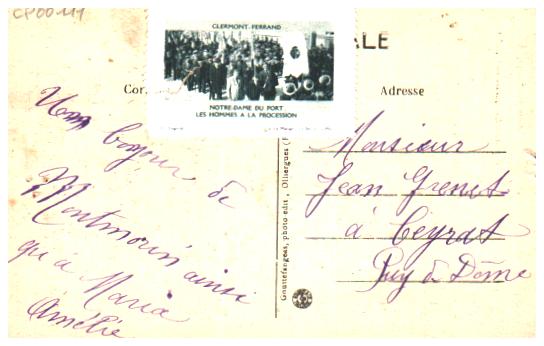 CP00111
CLERMONT-FERRAND
NOTRE-DAME DU PORT
LES HOMMES A LA PROCESSION
ALE
Cor
Adresse
bonjour de
Montmorin ainsi
qu'à Maria
Amélie
Gouttefangeas, photo-édit., Olliergues (P
Monsieur
Jean Grenet
à Ceyrat
Puy de Dôme